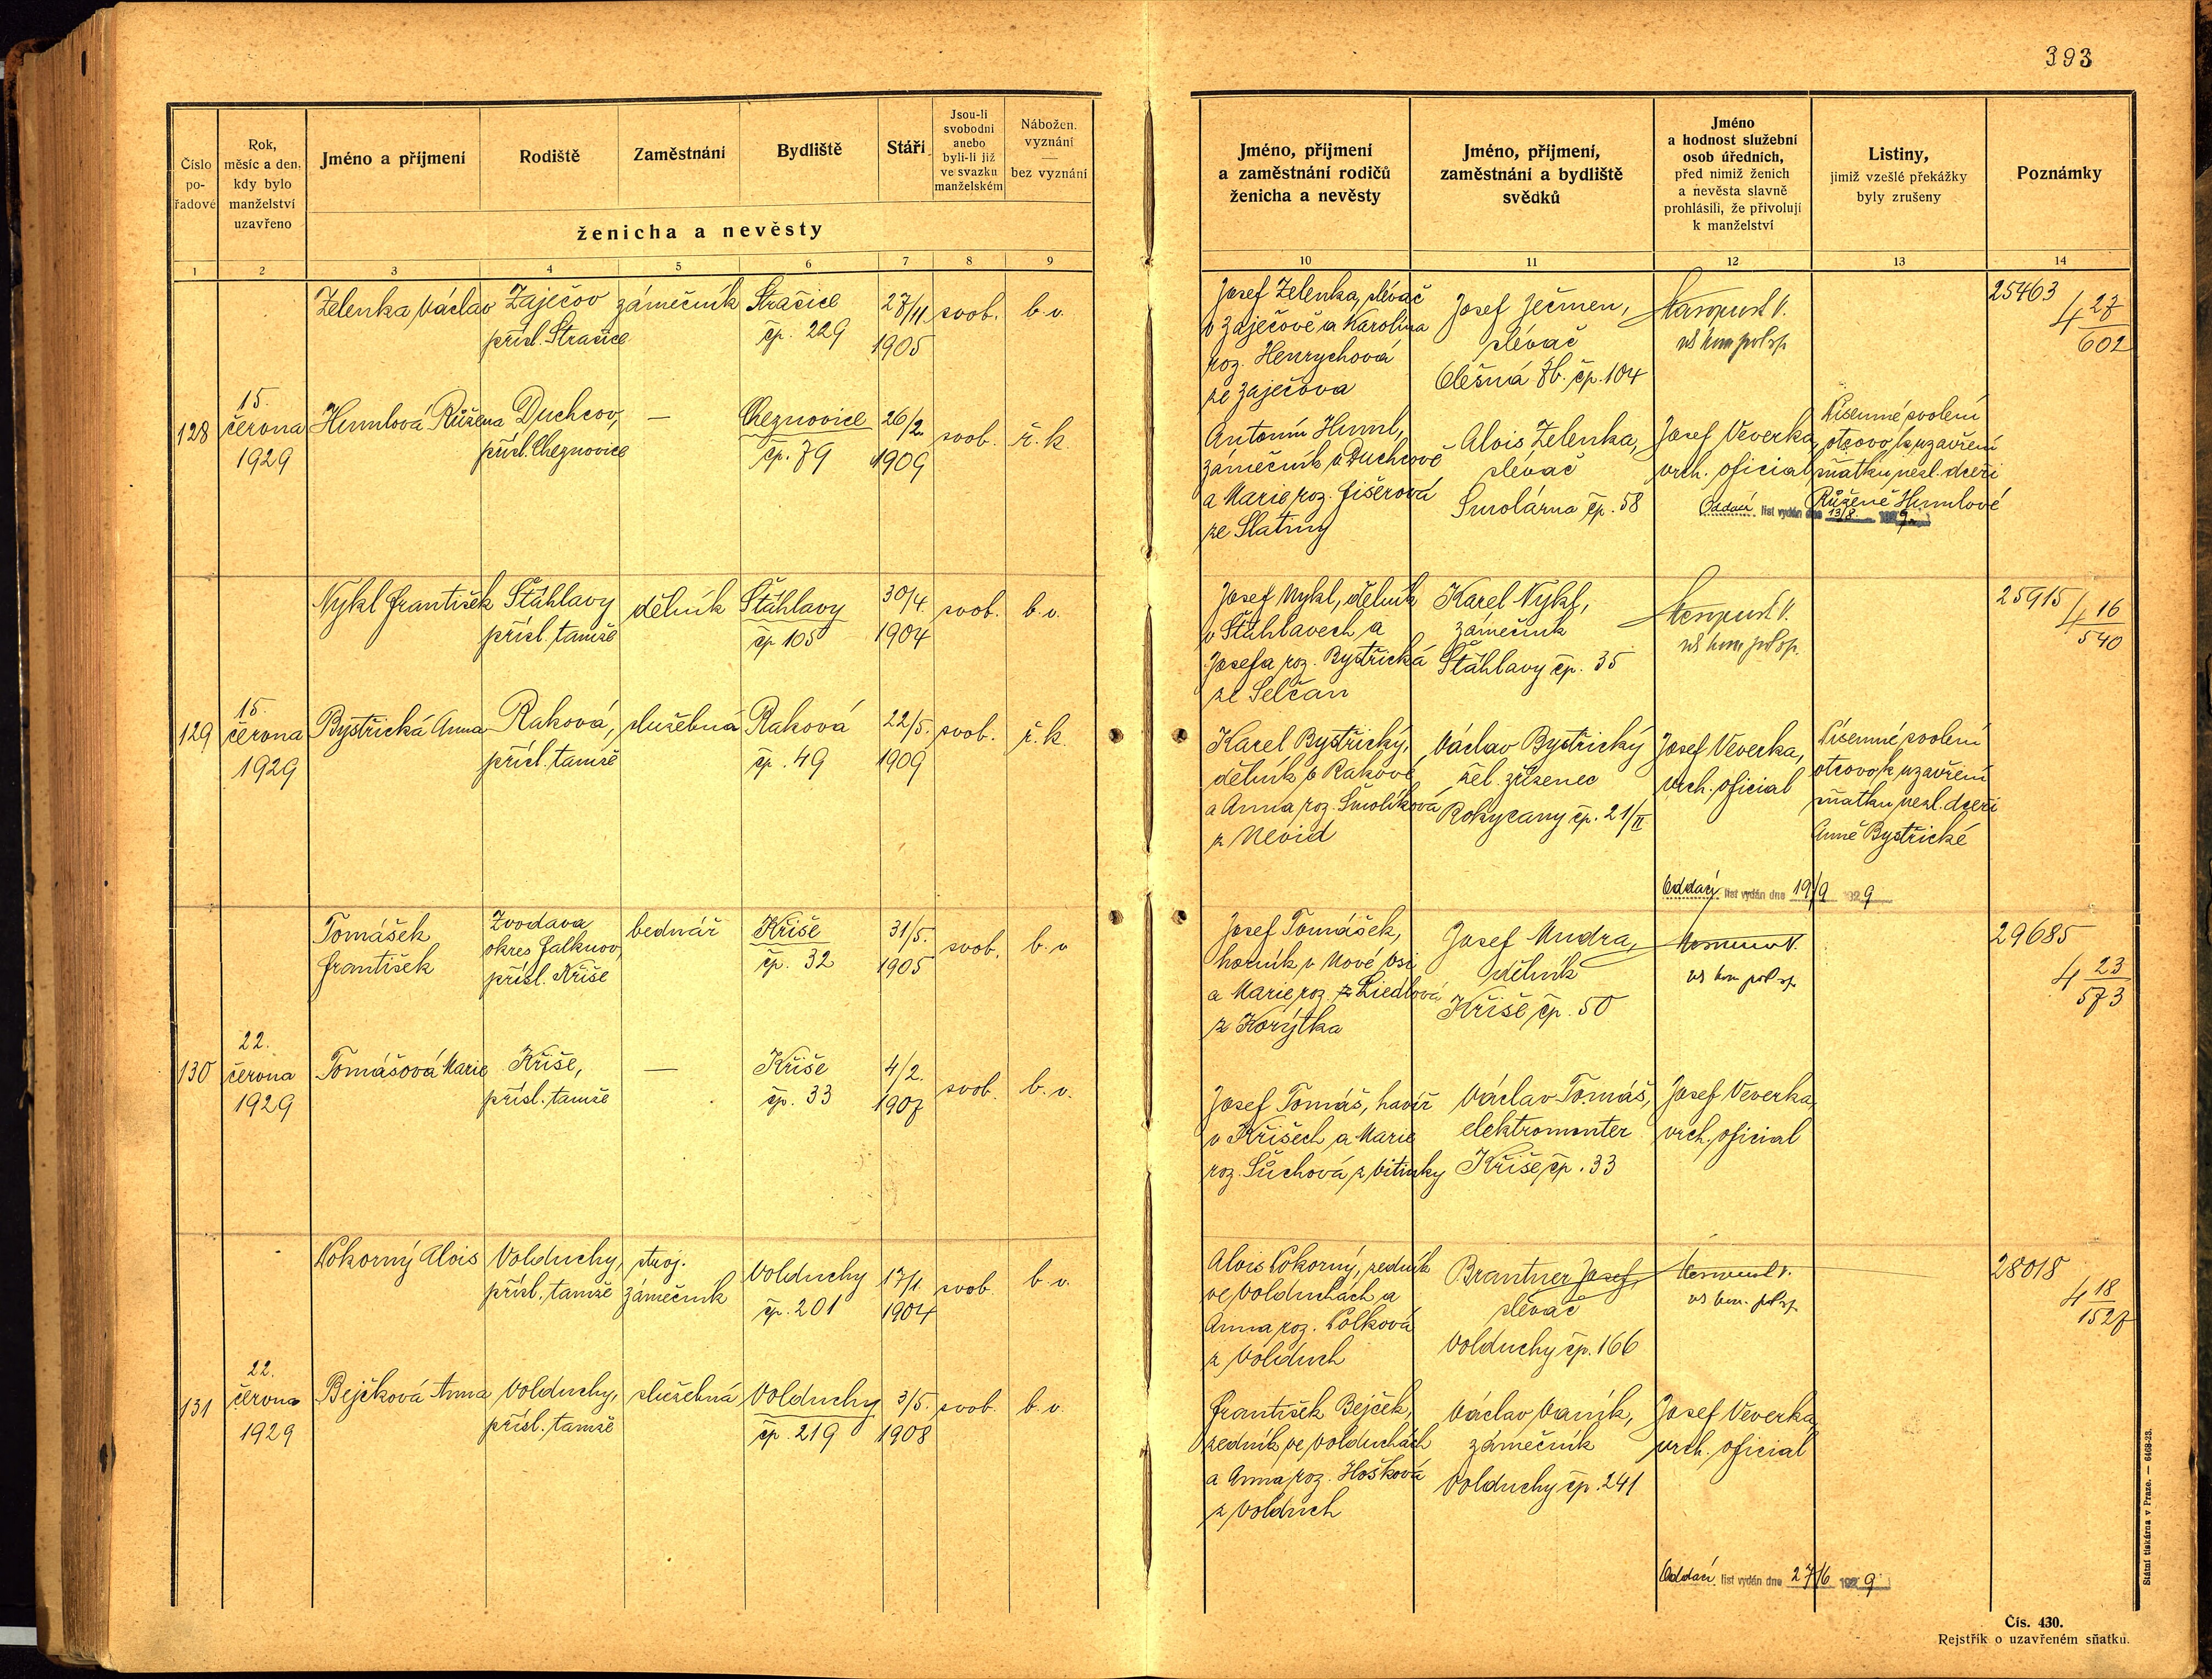 393
Číslo
po-
řadové
Rok,
měsíc a den,
kdy bylo
manželství
uzavřeno
Jméno a příjmení
Rodiště
Zaměstnání
Bydliště
Stáří
Jsou-li
svobodni
anebo
byli-li již
ve svazku
manželském
Nábožen.
vyznání
bez vyznání
ženicha a nevěsty
Jméno, příjmení
a zaměstnání rodičů
ženicha a nevěsty
Jméno, příjmení,
zaměstnání a bydliště
svědků
Jméno
a hodnost služební
osob úředních,
před nimiž ženich
a nevěsta slavně
prohlásili, že přivolují
k manželství
Listiny,
jimiž vzešlé překážky
byly zrušeny
Poznámky
1 2 3 4 5 6 7 8 9 10 11 12 13 14
Zelenka Václav
Zaječov
přísl. Strašice
zámečník
Strašice
čp. 229
27/11
1905
svob.
b. v.
Josef Zelenka, slévač
v Zaječově a Karolina
roz. Henrychová
ze Zaječova
Josef Ječmen,
slévač
Olešná Zb. čp. 104
25463
4 27
602
128
15.
června
1929
Humlová Růžena
Duchcov,
přísl. Cheznovice
—
Cheznovice
čp. 79
26/2.
1909
svob.
ř. k.
Antonín Huml,
zámečník v Duchcově
a Marie roz. Fišerová
ze Slatiny
Alois Zelenka,
slévač
Smolárna čp. 58
Josef Veverka,
vrch. oficial
Písemné svolení
otcovo k uzavření
sňatku nezl. dceři
Růženě Humlové
Oddací list vydán dne 13/8. 1929
Nykl František
Šťáhlavy
přísl. tamže
dělník
Šťáhlavy
čp 105
30/4.
1904
svob.
b. v.
Josef Nykl, dělník
v Šťáhlavech a
Josefa roz. Bystřická
ze Selčan
Karel Nykl,
zámečník
Šťáhlavy čp. 35
25915
4 16
540
129
15.
června
1929
Bystřická Anna
Raková,
přísl. tamže
služebná
Raková
čp. 49
22/5.
1909
svob.
ř. k.
Karel Bystřický,
dělník v Rakové
a Anna roz. Smolíková
z Nevid
Václav Bystřický
žel. zřízenec
Rokycany čp. 21/II
Josef Veverka,
vrch. oficial
Písemné svolení
otcovo k uzavření
sňatku nezl. dceři
Anně Bystřické
Oddací list vydán dne 19/9 1929
Tomášek
František
Zvodava
okres Falknov,
přísl. Kříše
bednář
Kříše
čp. 32
31/5.
1905
svob.
b. v
Josef Tomášek,
horník v Nové Vsi
a Marie roz. Liedlová
z Korýtka
Josef Mudra,
dělník
Kříše čp. 50
29685
4 23
573
130
22.
června
1929
Tomášová Marie
Kříše,
přísl. tamže
—
Kříše
čp. 33
4/2.
1907
svob.
b. v.
Josef Tomáš, havíř
v Kříších a Marie
roz. Suchová z Vitinky
Václav Tomáš,
elektromonter
Kříše čp. 33
Josef Veverka,
vrch. oficial
Pokorný Alois
Volduchy,
přísl. tamže
stroj.
zámečník
Volduchy
čp. 201
17/1.
1904
svob.
b. v.
Alois Pokorný, zedník
ve Volduchách a
Anna roz. Polková
z Volduch
Brantner Josef,
slévač
Volduchy čp. 166
28018
4 18
1527
131
22.
června
1929
Bejčková Anna
Volduchy,
přísl. tamže
služebná
Volduchy
čp. 219
3/5.
1908
svob.
b. v.
František Bejček,
zedník ve Volduchách
a Anna roz. Hošková
z Volduch
Václav Vaník,
zámečník
Volduchy čp. 241
Josef Veverka,
vrch. oficial
Oddací list vydán dne 27/6 1929
Státní tiskárna v Praze. — 6468-23.
Čís. 430.
Rejstřík o uzavřeném sňatku.